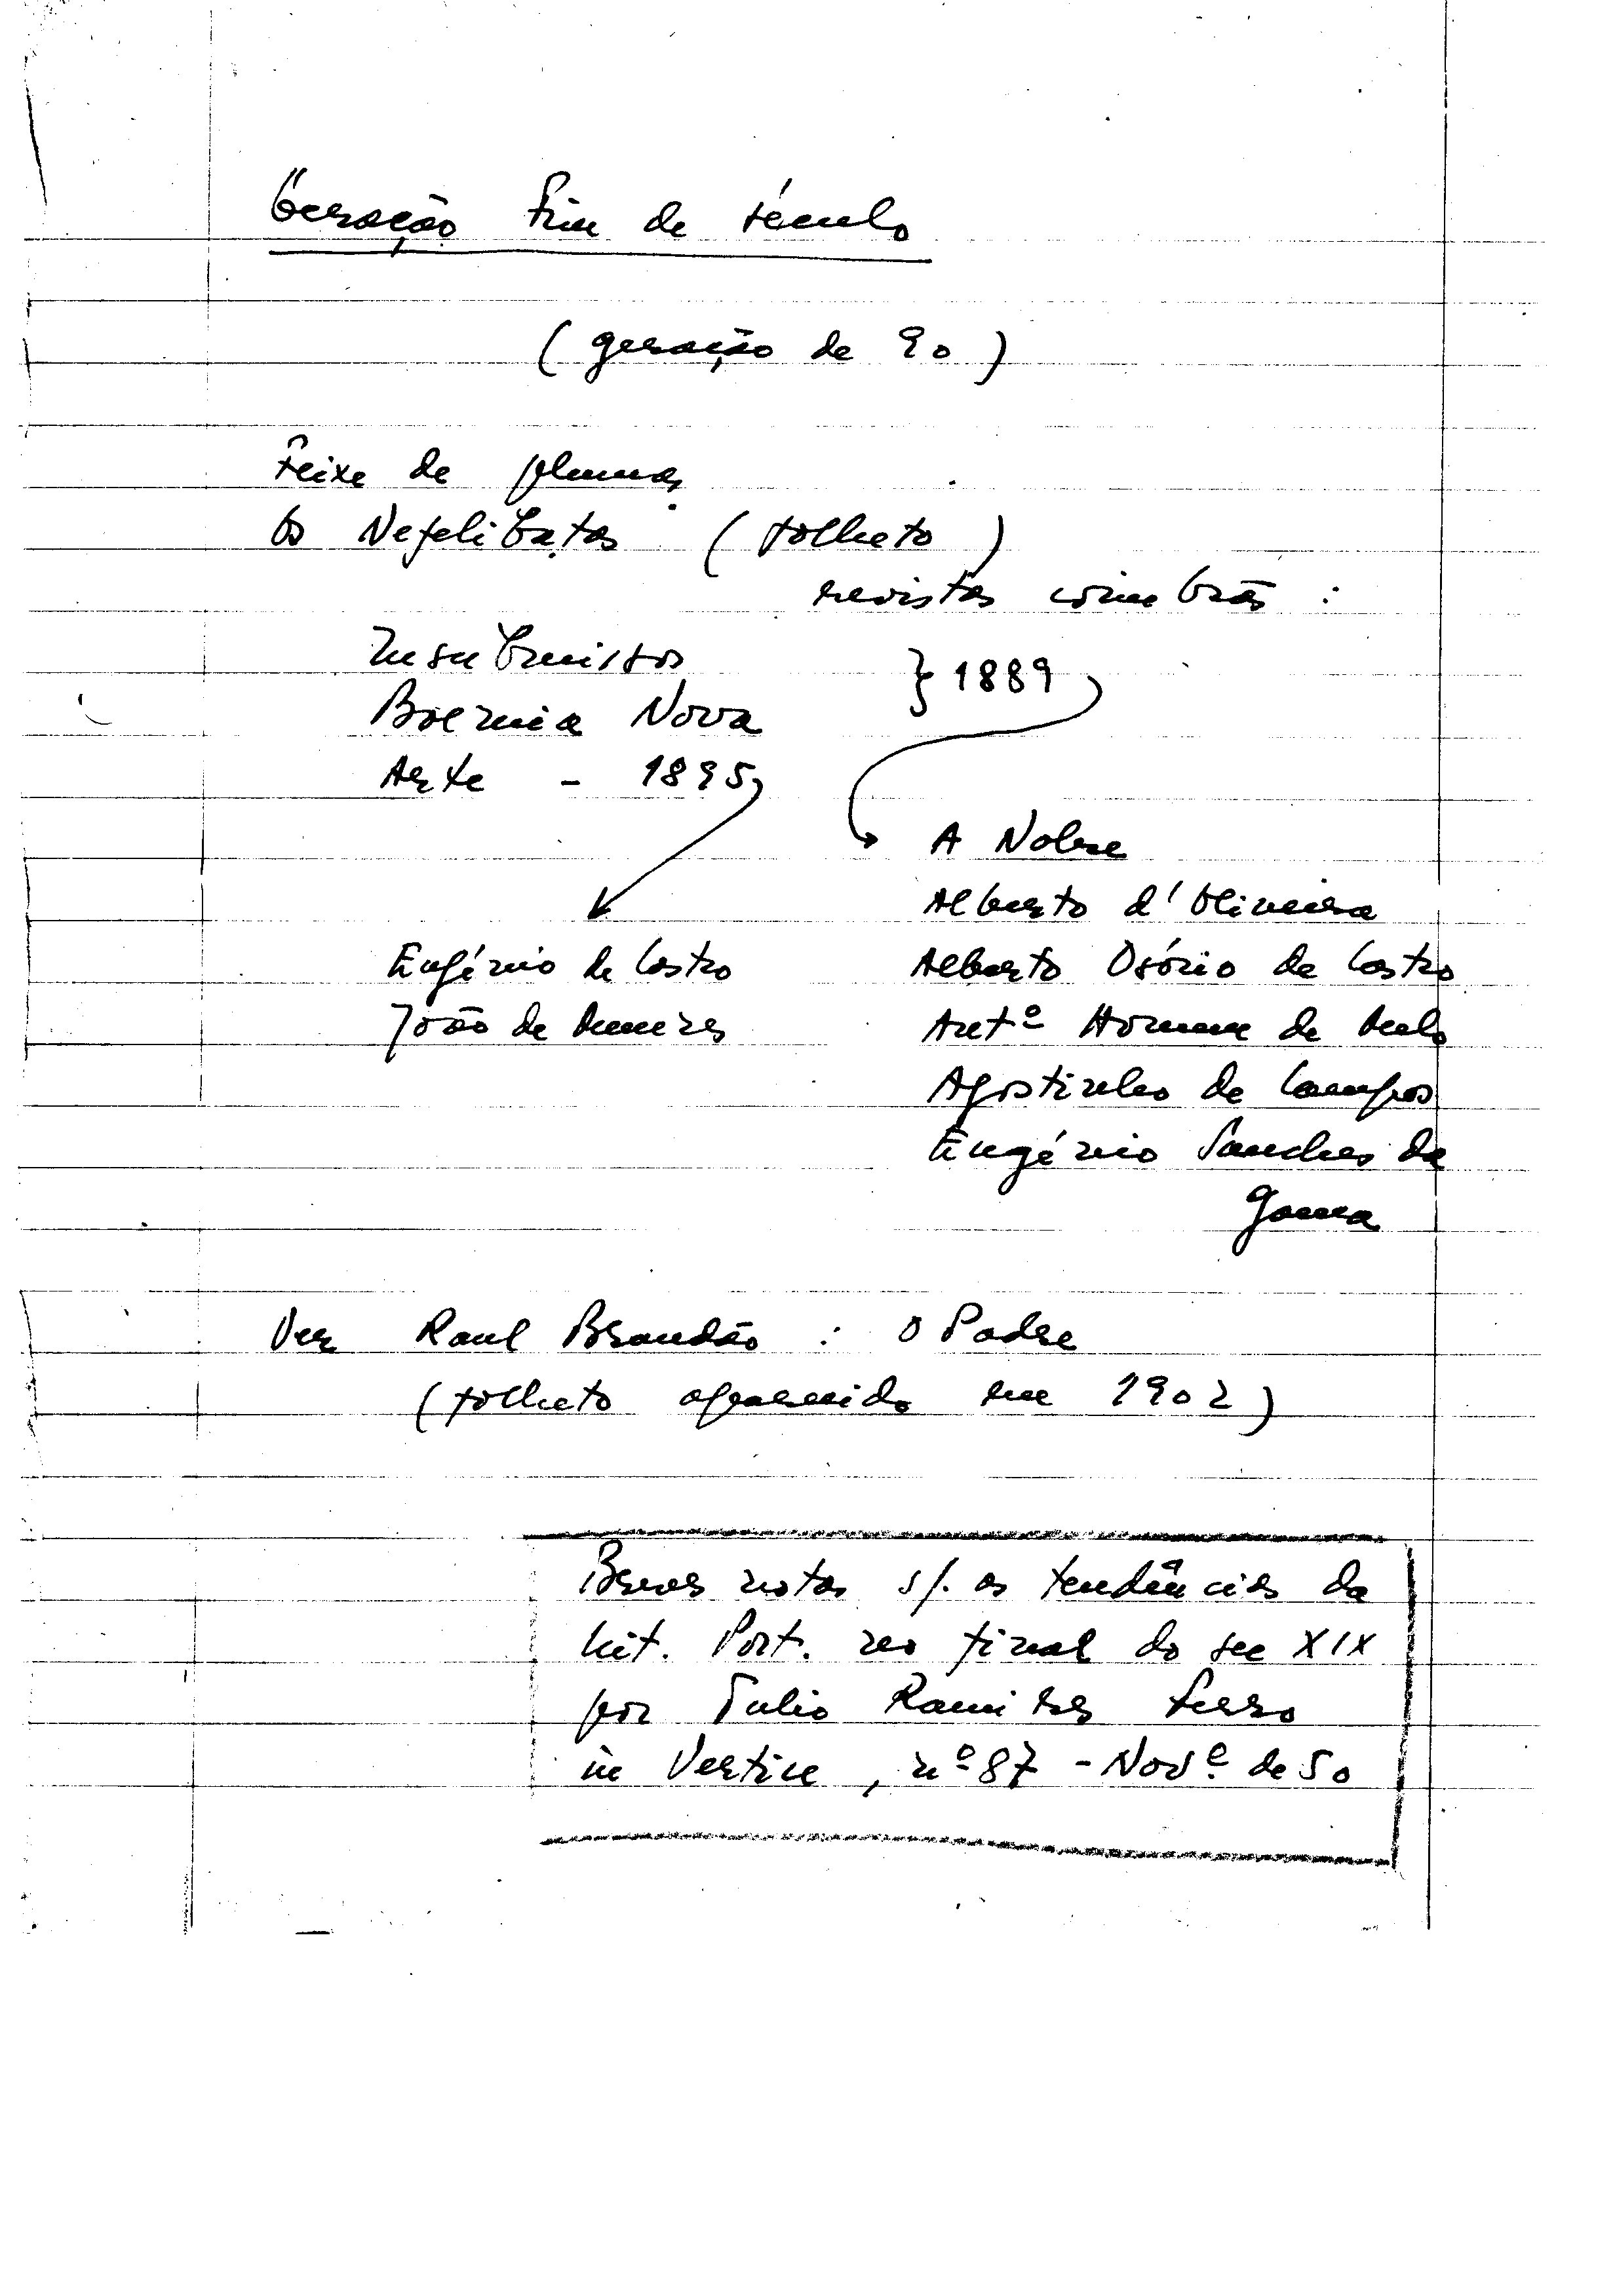 Geração Fim de século
(geração de 90)
Feixe de plumas
Os Nefelibatas (folheto)
revistas coimbrãs :
Insubmissos
} 1889
Boemia Nova
Arte - 1895
A Nobre
Alberto d'Oliveira
Eugénio de Castro
Alberto Osório de Castro
João de Menezes
Antº Homem de Melo
Agostinho de Campos
Eugénio Sanches da
Gama
Ver Raul Brandão : O Padre
(folheto aparecido em 1902)
Breves notas s/. as tendências da
Lit. Port. no final do sec XIX
por Tulio Ramires Ferro
in Vertice, nº 87 - Novº de 50